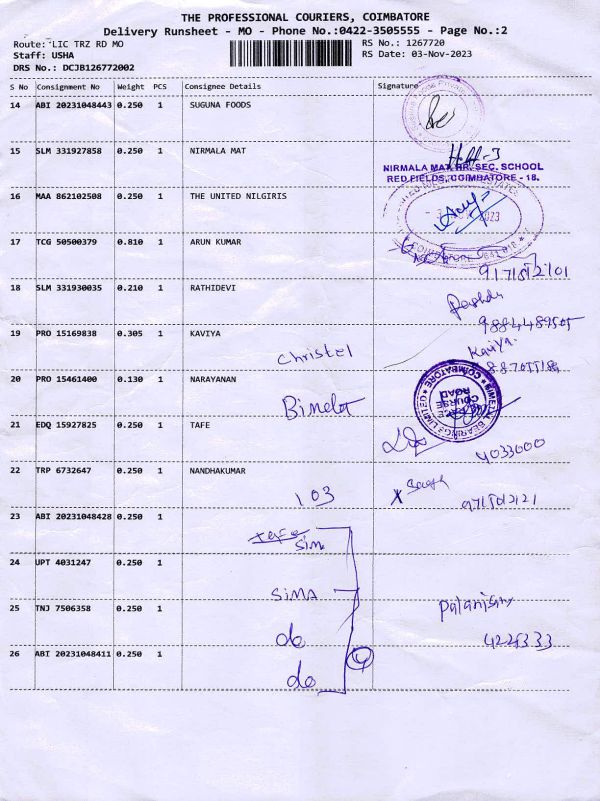 THE PROFESSIONAL COURIERS, COIMBATORE
Delivery Runsheet - MO - Phone No.:0422-3505555 - Page No.:2
Route: LIC TRZ RD MO
RS No.: 1267720
Staff: USHA
RS Date: 03-Nov-2023
DRS No.: DCJB126772002
S No Consignment No Weight PCS Consignee Details Signature
14 ABI 20231048443 0.250 1 SUGUNA FOODS
15 SLM 331927858 0.250 1 NIRMALA MAT
NIRMALA MAT. HR. SEC. SCHOOL
RED FIELDS, COIMBATORE - 18.
16 MAA 862102508 0.250 1 THE UNITED NILGIRIS
2023
17 TCG 50500379 0.810 1 ARUN KUMAR
COIMBATORE 641 018
18 SLM 331930035 0.210 1 RATHIDEVI
19 PRO 15169838 0.305 1 KAVIYA
Christel
Kaviya
20 PRO 15461400 0.130 1 NARAYANAN
BEARINGS LIMITED COIMBATORE
RACE COURSE ROAD
21 EDQ 15927825 0.250 1 TAFE
4033600
22 TRP 6732647 0.250 1 NANDHAKUMAR
103
23 ABI 20231048428 0.250 1
Sim
24 UPT 4031247 0.250 1
SIMA
25 TNJ 7506358 0.250 1
do
26 ABI 20231048411 0.250 1
do
4